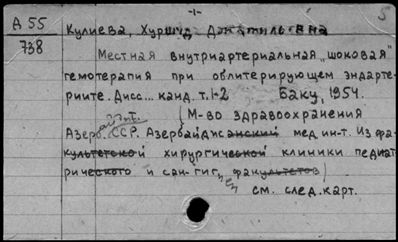 -1-
5
А 55
738
Кулиева, Хуршуд
Местная внутриартериальная „шоковая"
гемотерапия при облитерирующем эндарте-
риите. Дисс... канд. т.1-2 Баку, 1954.
М-во здравоохранения
Азерб. ССР. Азербайджанский мед. ин-т. Из фа-
культетской хирургической клиники педиат-
рического и сан-гиг. факультетов)
см. след. карт.